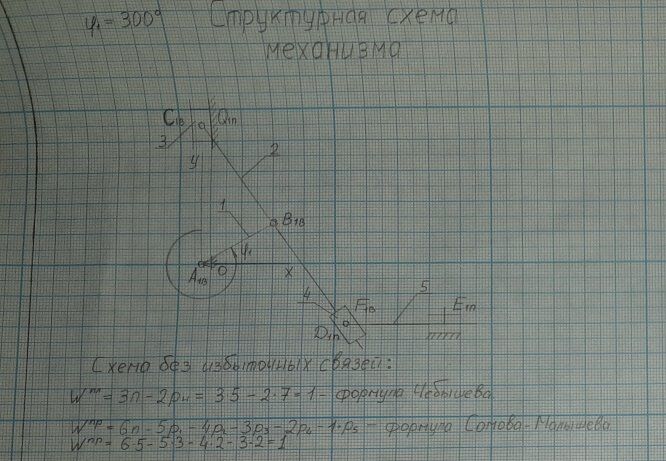 φ₁ = 300° Структурная схема
механизма
C₁в Q₁п
3
y
2
1
B₁в
φ₁
A₁в O
x
4 F₁в 5 E₁п
D₁п
Схема без избыточных связей:
Wпл = 3n - 2pн = 3·5 - 2·7 = 1 - формула Чебышева.
Wпр = 6n - 5p₁ - 4p₂ - 3p₃ - 2p₄ - 1·p₅ - формула Сомова-Малышева
Wпр = 6·5 - 5·3 - 4·2 - 3·2 = 1